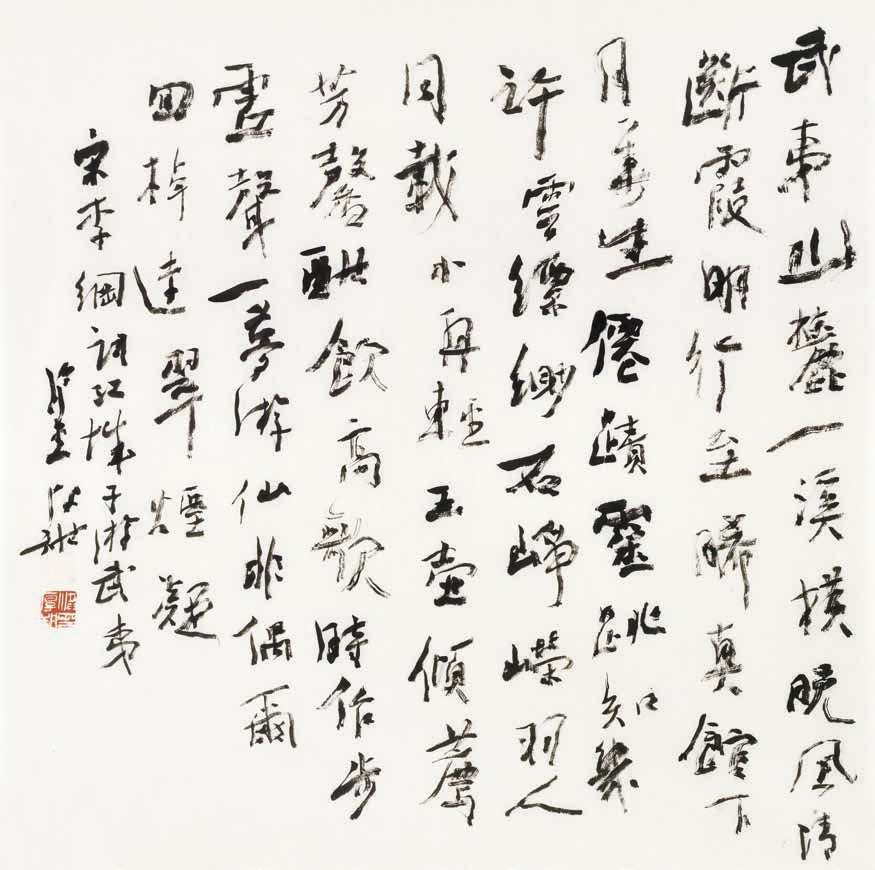 武夷山麓一溪橫晚風清
斷霞明行至晞真館下
月華生僊蹟靈蹤知幾
許雲縹緲石崢嶸羽人
同載小舟輕玉壺傾薦
芳馨酣飲高歌時作步
虛聲一夢游仙非偶爾
回棹遠翠煙凝
宋李綱詞江城子游武夷